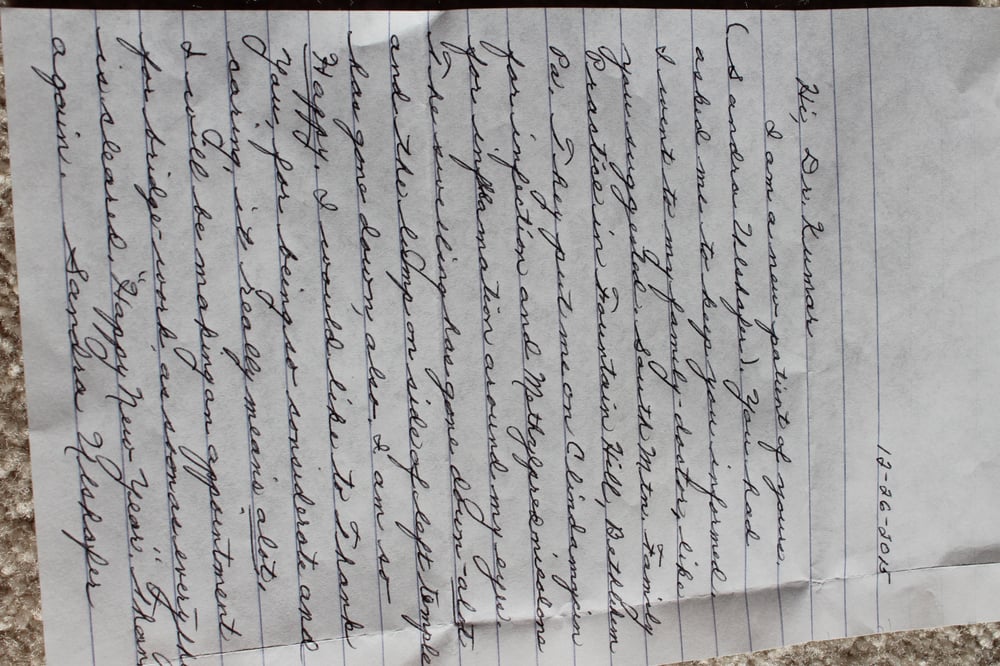 12-26-2015
Hi, Dr. Kumar
I am a new patient of yours.
(Sandra Neshafer). You had
asked me to keep you informed.
I went to my family-doctor, like
you suggested. South Mtn. Family
Practice in Fountain Hill, Bethlehem
Pa. They put me on Clindamycin
for infection and Methylprednisolone
for inflamation around my eye.
The swelling has gone down alot
and the lump on side of left temple
has gone down, also. I am so
Happy. I would like to Thank
You, for being so considerate and
caring, it really means alot.
I will be making an appointment
for bridge-work, as soon as everyth
is cleared, "Happy New Year"! Than
again. Sandra